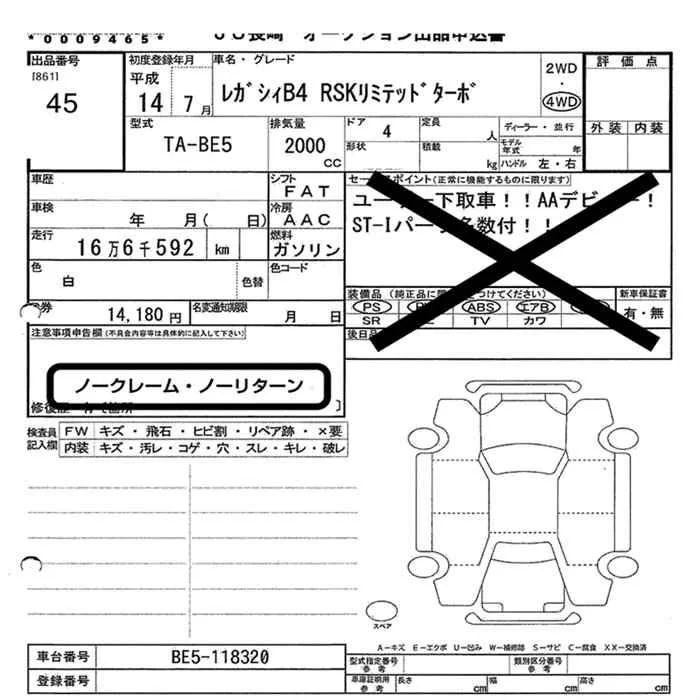 *0009465* JU長崎 オークション出品申込書
出品番号 初度登録年月 車名・グレード 評価点
[861] 平成 2WD
45 14 7月 レガシィB4 RSKリミテッドターボ ・
4WD
型式 排気量 ドア 4 定員 人 ディーラー・並行 外装 内装
TA-BE5 2000 CC 形状 積載 kg モデル年式 年
ハンドル 左・右
車歴 シフト FAT セールスポイント(正常に機能するものに限ります)
車検 年 月( 日) 冷房 AAC ユーザー下取車!!AAデビュー!
走行 16万6千592 km 燃料 ガソリン ST-Iパーツ多数付!!
色 白 色替 色コード
14,180円 名変通知期限 月 日 装備品 新車保証書
PS ABS エアB 有・無
SR TV カワ
注意事項申告欄(不具合内容等は具体的に記入して下さい) 後日品
ノークレーム・ノーリターン
検査員 FW キズ・飛石・ヒビ割・リペア跡・×要
記入欄 内装 キズ・汚レ・コゲ・穴・スレ・キレ・破レ
スペア
A-キズ E-エクボ U-凹み W-補修跡 S-サビ C-腐食 XX-交換済
車台番号 BE5-118320 型式指定番号 参考 類別区分番号 参考
登録番号 車庫証明用 参考 長さ cm 幅 cm 高さ cm